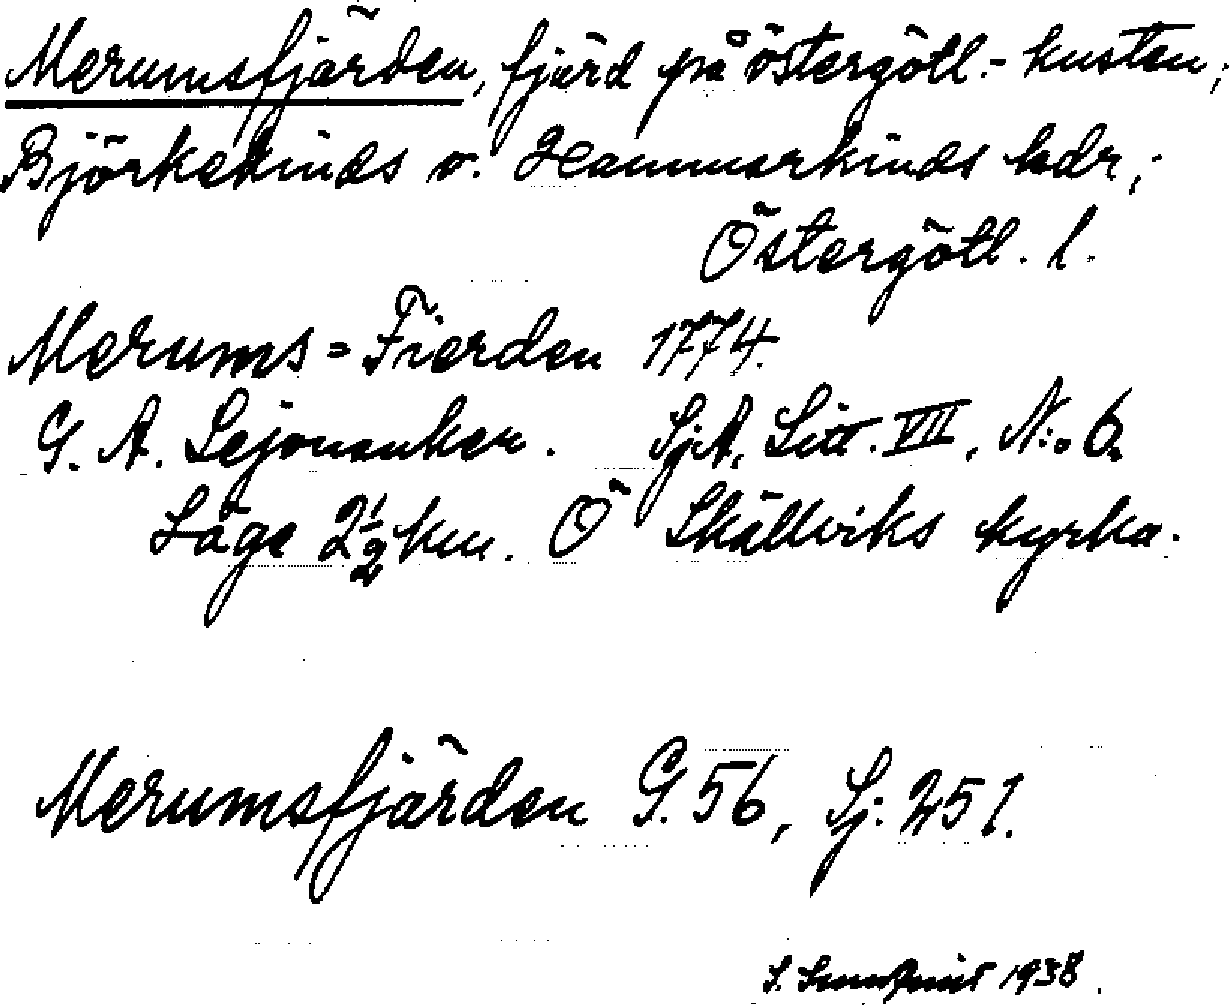 Merumsfjärden, fjärd på östergötl.-kusten;
Björkekinds o. Hammarkinds hdr,;
Östergötl. l.
Merums=Fierden 1774.
G. A. Lejonanker. SjA, Litt. VII, N:o 6.
Läge 2½ km. Ö Skällviks kyrka.
Merumsfjärden G. 56, Sj. 251.
S. Sundqvist 1938.